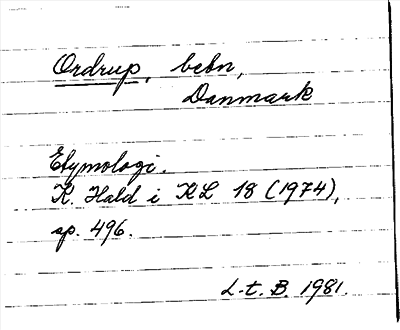 Ordrup, bebn,
Danmark
Etymologi.
K. Hald i KL 18 (1974),
sp. 496.
L.t.B. 1981.